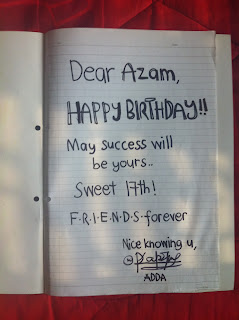 Dear Azam,
HAPPY BIRTHDAY!!
May success will
be yours..
Sweet 17th!
F·R·I·E·N·D·S·forever
Nice knowing u,
ADDA